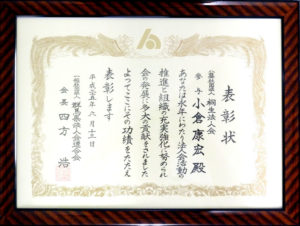 表彰状
(一般社団法人) 桐生法人会
参与 小倉康宏殿
あなたは永年にわたり法人会活動の
推進と組織の充実強化に努められ
会の発展に多大の貢献をされました
よってここにその功績をたたえ
表彰します
平成二十五年六月十三日
一般社団法人 群馬県法人会連合会
会長 四方浩